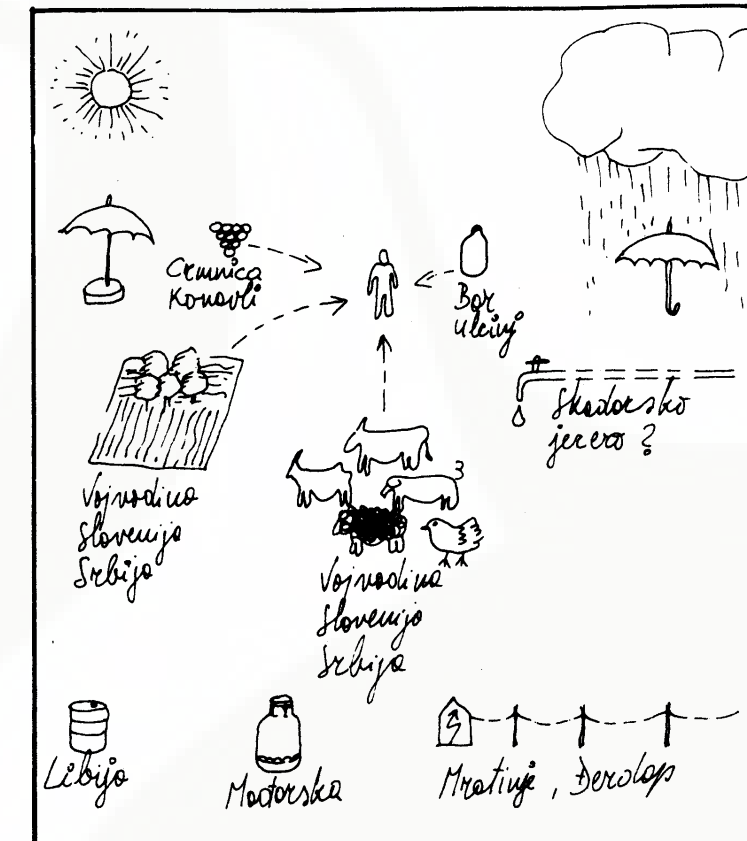 Crmnica
Konavli
Bar
Ulcinj
Skadarsko
jezero ?
Vojvodina
Slovenija
Srbija
Vojvodina
Slovenija
Srbija
Libija
Mađarska
Mratinje , Đerdap